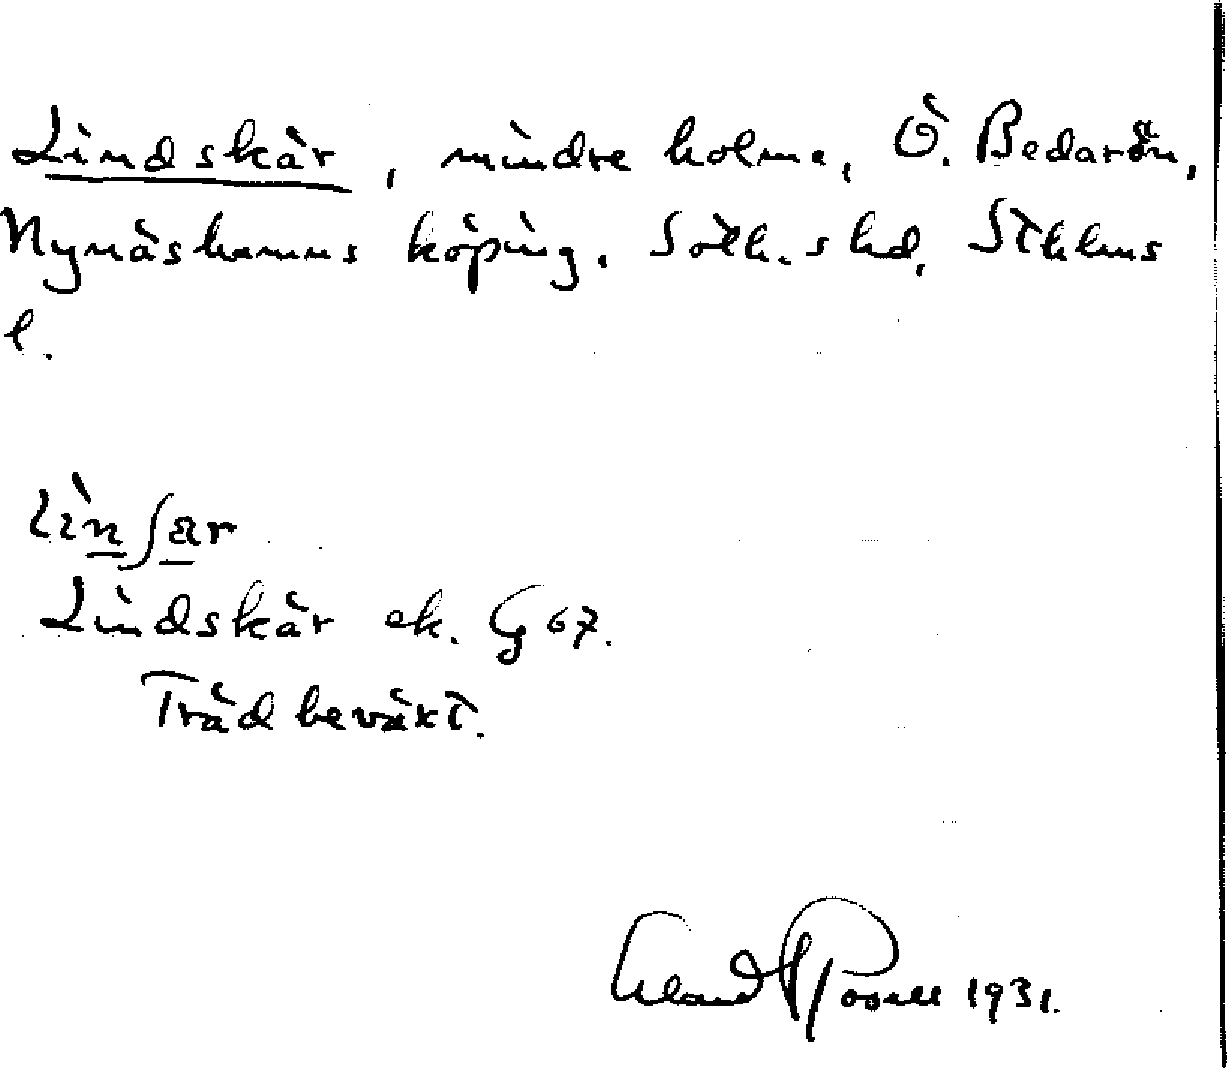 Lindskär, mindre holme, Ö. Bedarön,
Nynäshamns köping. Soth. hd, Sthlms
l.
linʃar
Lindskär ek. G 67.
Trädbeväxt.
1931.